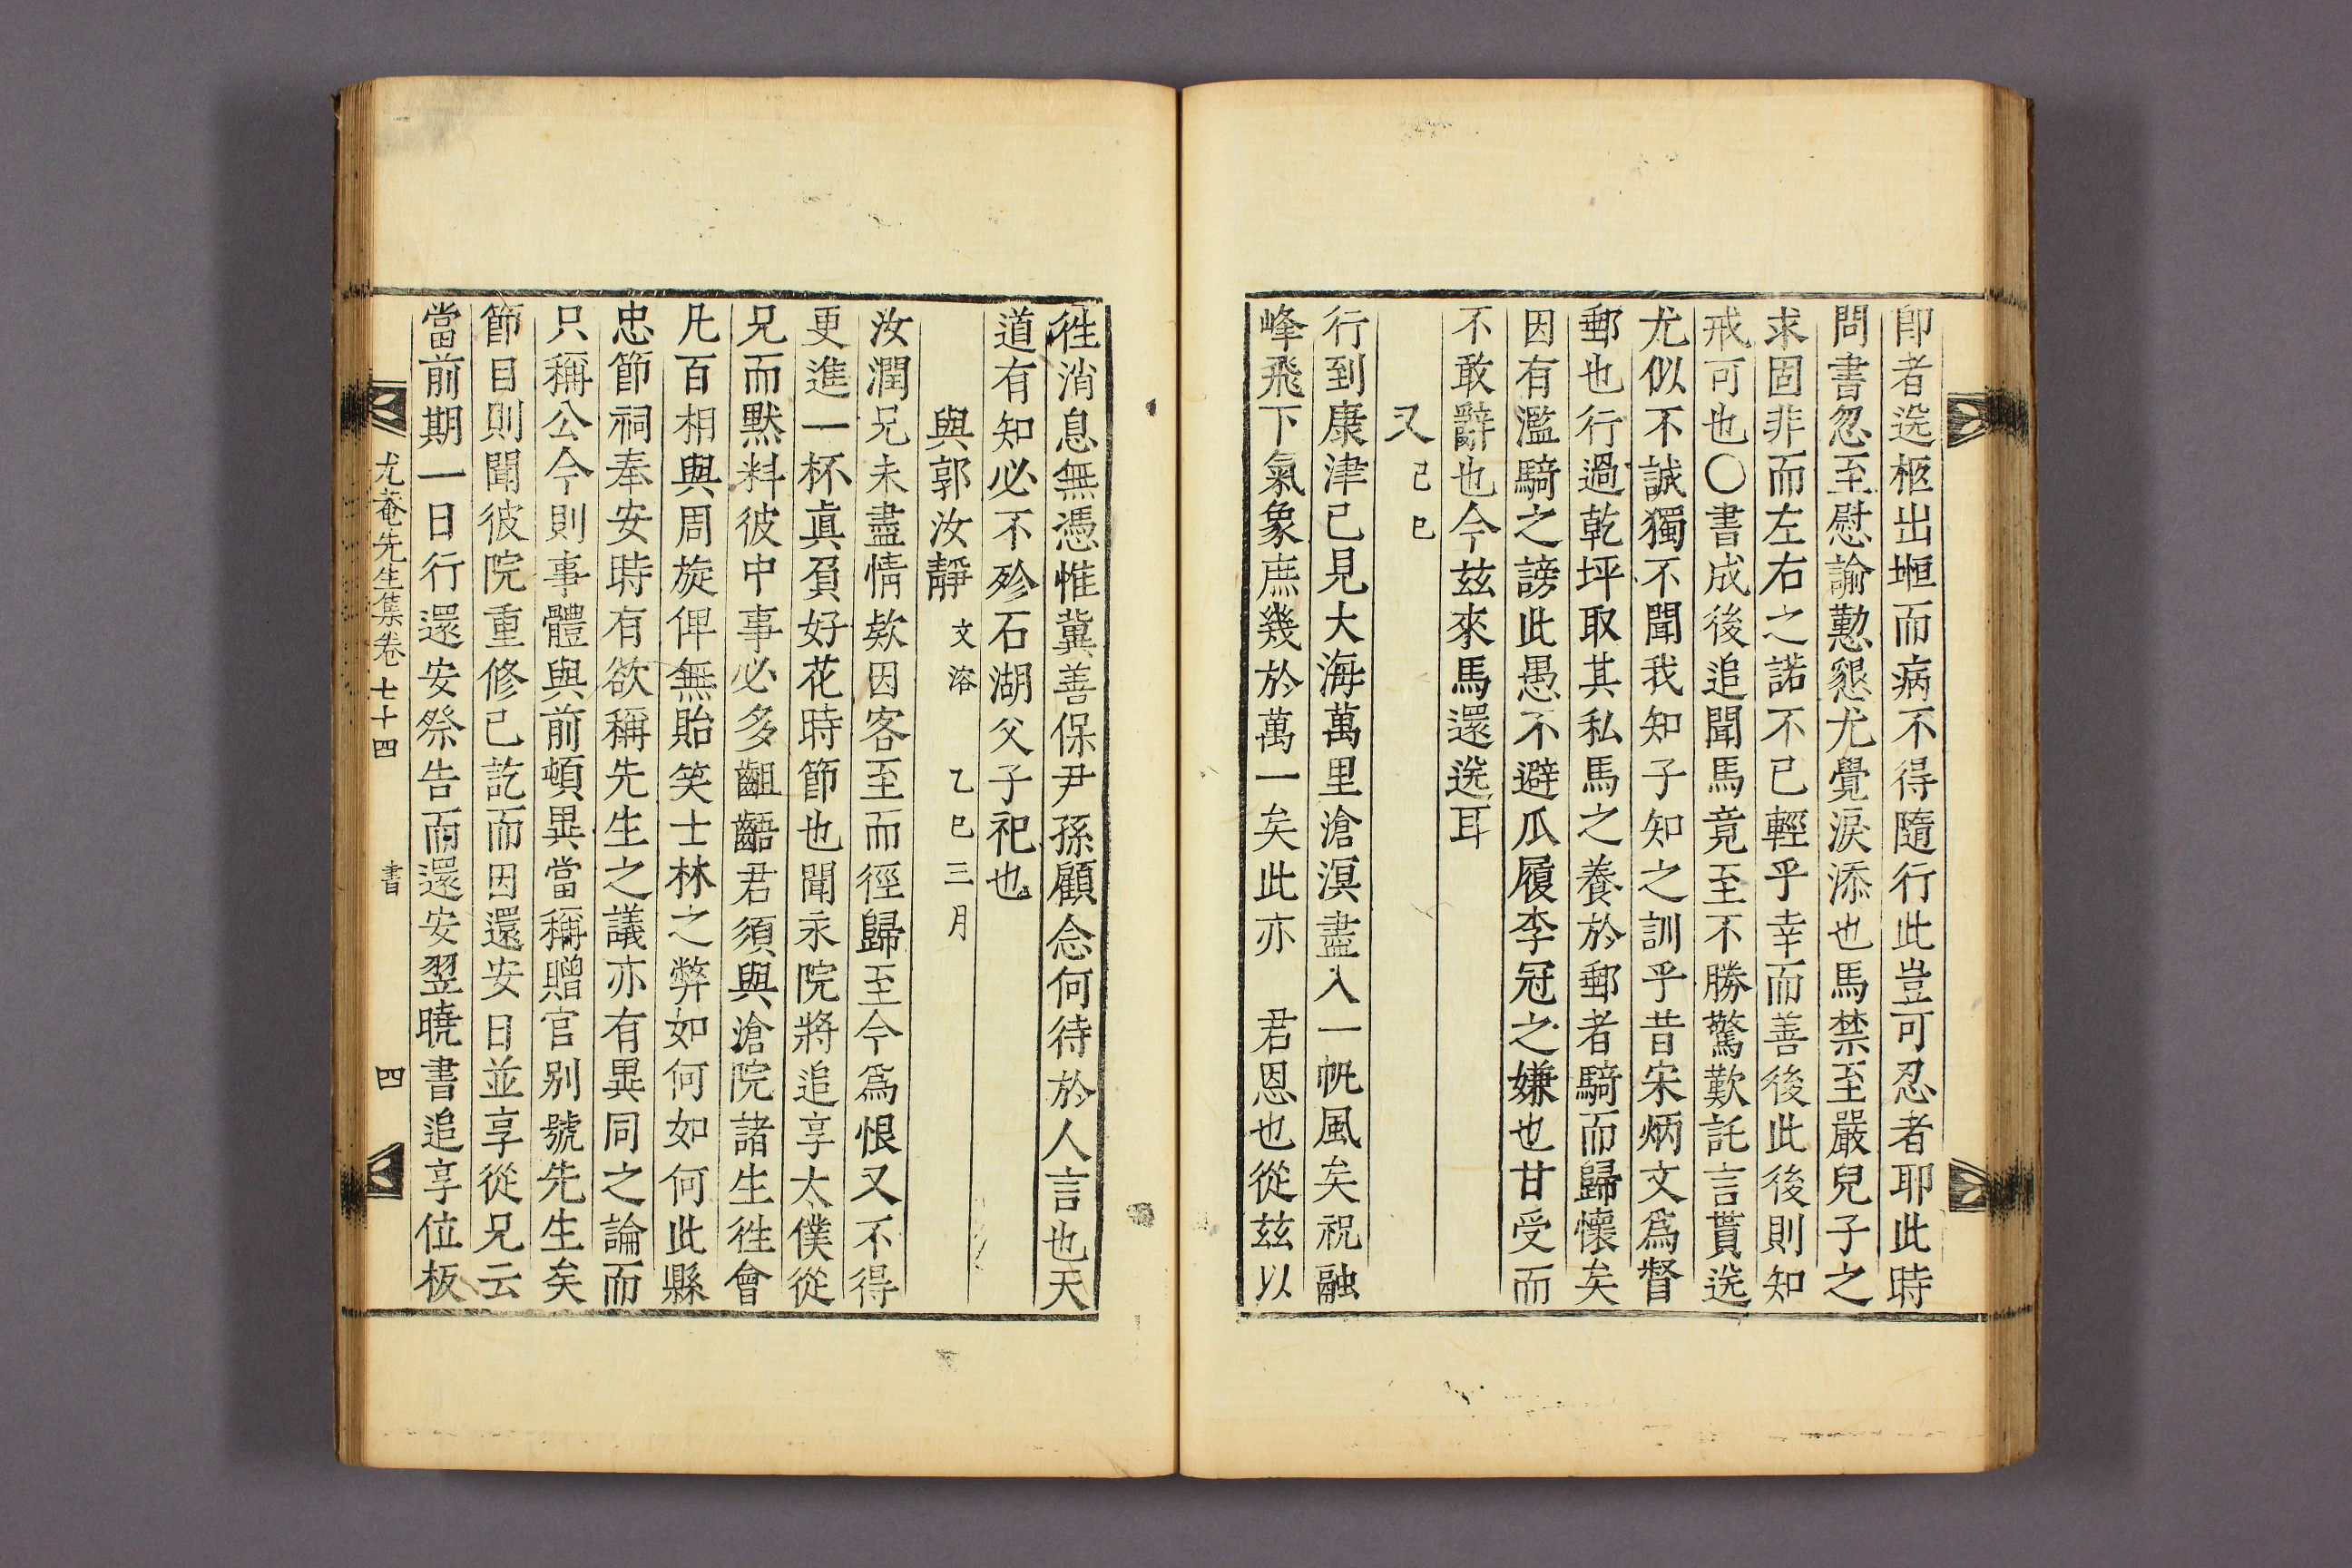 卽者送柩出郊而病不得隨行此豈可忍者耶此時
問書忽至慰諭懃懇尤覺淚添也馬禁至嚴兒子之
求固非而左右之諾不已輕乎幸而善後此後則知
戒可也○書成後追聞馬竟至不勝驚歎託言貰送
尤似不誠獨不聞我知子知之訓乎昔宋炳文爲督
郵也行過乾坪取其私馬之養於郵者騎而歸懷矣
因有濫騎之謗此愚不避瓜履李冠之嫌也甘受而
不敢辭也今玆來馬還送耳
又 己巳
行到康津已見大海萬里滄溟盡入一帆風矣祝融
峰飛下氣象庶幾於萬一矣此亦 君恩也從玆以
徃消息無憑惟冀善保尹孫顧念何待於人言也天
道有知必不殄石湖父子祀也
與郭汝靜 文溶 乙巳三月
汝潤兄未盡情欵因客至而徑歸至今爲恨又不得
更進一杯眞負好花時節也聞永院將追享太僕從
兄而默料彼中事必多齟齬君須與滄院諸生徃會
凡百相與周旋俾無貽笑士林之弊如何如何此縣
忠節祠奉安時有欲稱先生之議亦有異同之論而
只稱公今則事體與前頓異當稱贈官別號先生矣
節目則聞彼院重修已訖而因還安日並享從兄云
當前期一日行還安祭告而還安翌曉書追享位板
尤菴先生集卷七十四 書 四